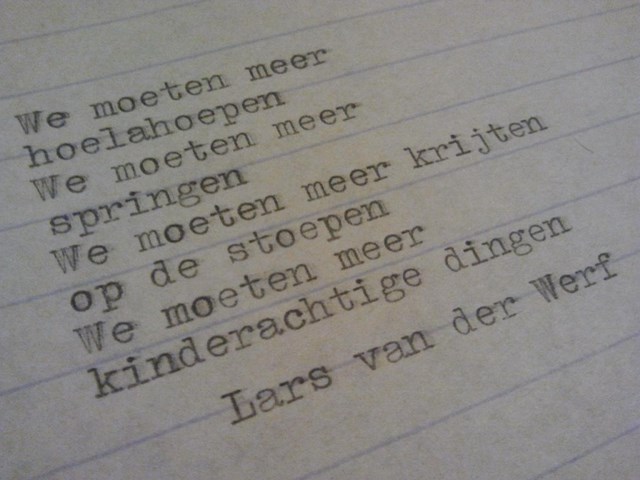 We moeten meer
hoelahoepen
We moeten meer
springen
We moeten meer krijten
op de stoepen
We moeten meer
kinderachtige dingen
Lars van der Werf